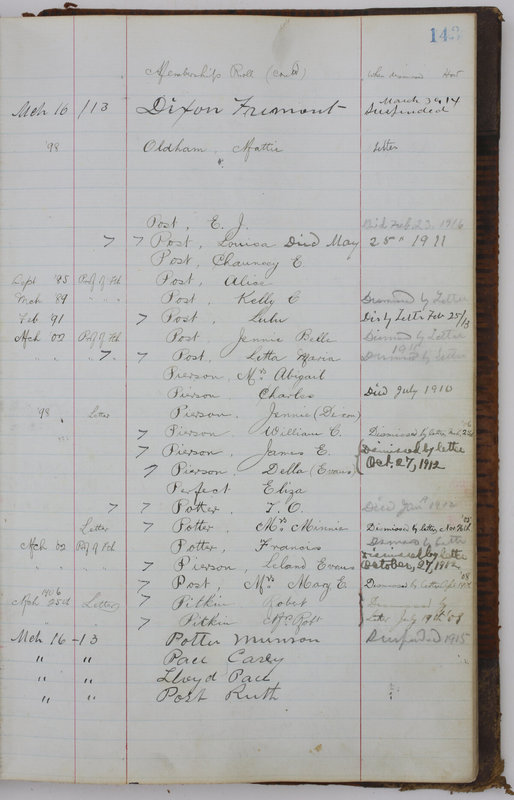 143
Membership Roll (con'd) When dismissed How
Mch 16 /13 Dixon Fremont March 30, 14 Suspended
'98 Oldham, Mattie Letter
Post, E. J. Died Feb. 23, 1916
Post, Louisa Died May 25" 1911
Post, Chauncey E
Sept '95 Prof of Fth Post, Alice
Mch 89 " " " Post, Kelly C Dismissed by Letter
Feb 91 Post, Lulu Dis by Letter Feb 25/13
Mch 02 Prof of Fth Post, Jennie Belle Dismissed by Letter
" " " Post, Letta Maria Dismissed by Letter
Pierson, Mrs Abigail
Pierson, Charles Died July 1910
'98 Letter Pierson, Jennie (Dixon)
Pierson, William C. Dismissed by letter
Pierson, James E. Dismissed by lette
Pierson, Della (Evans) Oct. 27, 1912
Perfect Eliza
Potter, T. C. Died Jan 1912
Letter Potter, Mrs Minnie Dismissed by letter, Nov
Mch 02 Prof of Fth Potter, Francis Dismiss by Lette
" " " Pierson, Leland Evans Dismissed by lette October, 27, 1912
Post, Mrs Mary E. Dismissed by letter
1906
Mch 25th Letter Pitkin Robert Dismissed by
" Pitkin Mrs Robt Letter July 19th '08
Mch 16 -13 Potter Munson Suspended 1915
" " Pace Carey
" " Lloyd Pace
" " Post Ruth